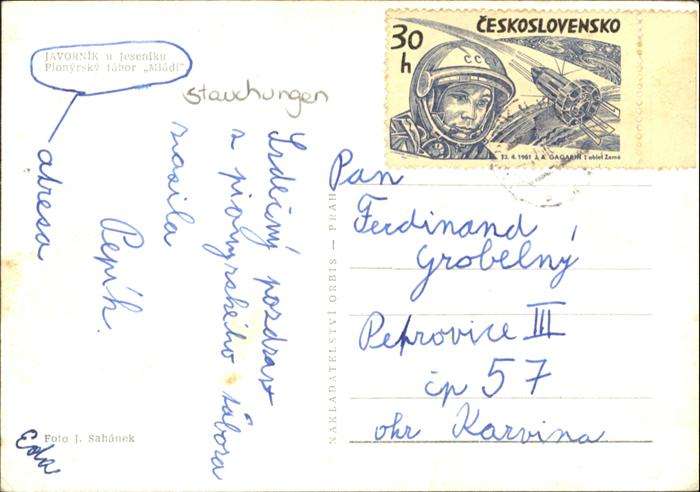 JAVORNÍK u Jeseníku
Pionýrský tábor „Mládí"
stauchungen
Srdečný pozdrav
z pionýrského tábora
zasíla
Pepík.
adresa
Eda
Foto J. Sahánek
NAKLADATELSTVÍ ORBIS — PRAHA
ČESKOSLOVENSKO
30
h
12. 4. 1961 J. A. GAGARIN : oblet Země
Pan
Ferdinand
Grobelný
Petrovice III
čp 57
okr Karvina